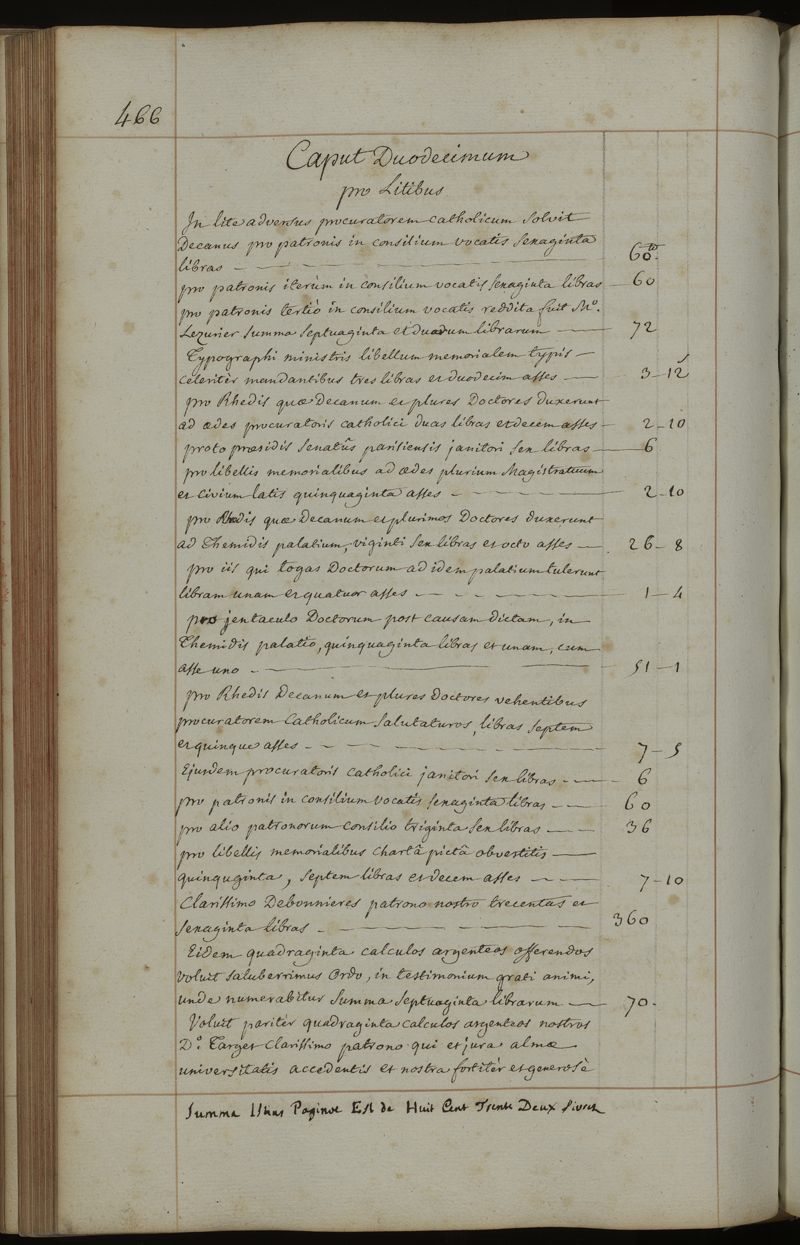 466
Caput Duodecimum
pro Litibus
In lite adversus procuratorem catholicum solvit
Decanus pro patronis in consilium vocatis sexaginta
libras — 60
pro patronis iterùm in consilium vocatis sexaginta libras — 60
pro patronis tertiò in consilium vocatis reddita fuit Mo.
Lezurier summa septuaginta et duadum librarum — 72
Typographi ministris libellum memorialem typis —
celeritèr mandantibus tres libras et duodecim asses — 3 - 12
pro Rhedis quæ Decanum et plures Doctores duxerunt
ad ædes procuratoris catholici duas libras et decem asses - 2 - 10
proto præsidis Senatûs parisiensis janitori sex libras — 6
pro libellis memorialibus ad ædes plurium Magistratuum
et civium latis quinquaginta asses — 2 - 10
pro Rhedis quæ Decanum et plurimos Doctores duxerunt
ad Themidis palatium, viginti sex libras et octo asses — 26 - 8
pro iis qui togas Doctorum ad idem palatium tulerunt
libram unam et quatuor asses — 1 - 4
pro jentaculo Doctorum post causam dictam, in
Themidis palatio, quinquaginta libras et unam, cum
asse uno — 51 - 1
pro Rhedis Decanum et plures Doctores vehentibus
procuratorem Catholicum salutaturos, libras septem
et quinque asses — 7 - 5
Ejusdem procuratoris catholici janitori sex libras — 6
pro patronis in consilium vocatis sexaginta libras — 60
pro alio patronorum consilio triginta sex libras — 36
pro libellis memorialibus chartâ pictâ obvestitis —
quinquginta, septem libras et decem asses — 7 - 10
Clarissimo Debonnieres patrono nostro trecentas et
sexaginta libras — 360
Eidem quadraginta calculos argenteos offerendos
voluit saluberrimus Ordo, in testimonium grati animi,
unde numerabitur summa septuaginta librarum — 70.
Voluit paritèr quadraginta calculos argenteos nostros
Do. Target clarissimo patrono qui et jura almæ
universitatis accedentis et nostra fortitèr et generosè
Summa Istius Paginæ Est de Huit Cent Trente Deux Livres